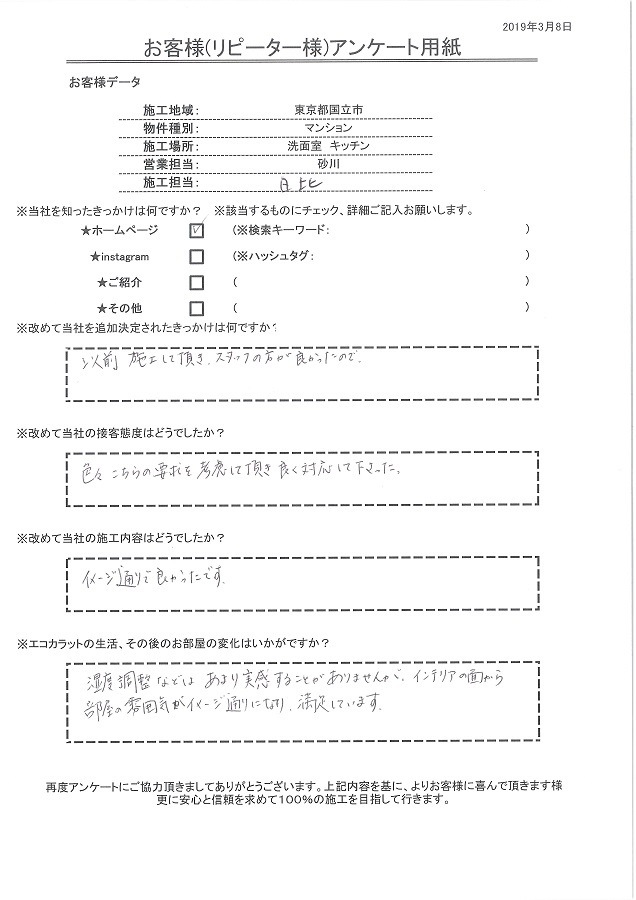 2019年3月8日
お客様(リピーター様)アンケート用紙
お客様データ
施工地域: 東京都国立市
物件種別: マンション
施工場所: 洗面室 キッチン
営業担当: 砂川
施工担当: 日比
※当社を知ったきっかけは何ですか? ※該当するものにチェック、詳細ご記入お願いします。
★ホームページ (※検索キーワード: )
★instagram (※ハッシュタグ: )
★ご紹介 ( )
★その他 ( )
※改めて当社を追加決定されたきっかけは何ですか?
以前 施工して頂き、スタッフの方が良かったので。
※改めて当社の接客態度はどうでしたか?
色々こちらの要求を考慮して頂き良く対応して下さった。
※改めて当社の施工内容はどうでしたか?
イメージ通りで良かったです。
※エコカラットの生活、その後のお部屋の変化はいかがですか?
湿度調整などは あまり実感することがありませんが、インテリアの面から
部屋の雰囲気がイメージ通りになり、満足しています。
再度アンケートにご協力頂きましてありがとうございます。上記内容を基に、よりお客様に喜んで頂きます様
更に安心と信頼を求めて100%の施工を目指して行きます。